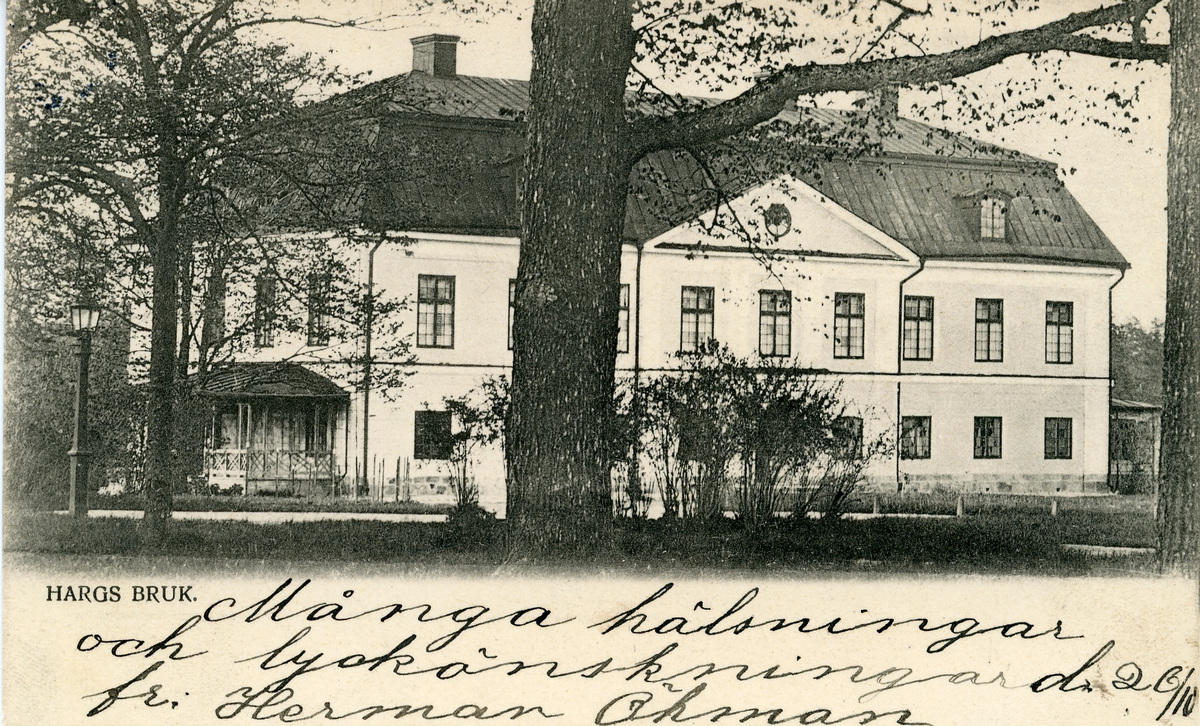 HARGS BRUK.
Många hälsningar
och lyckönskningar d. 26/10
fr. Herman Öhman